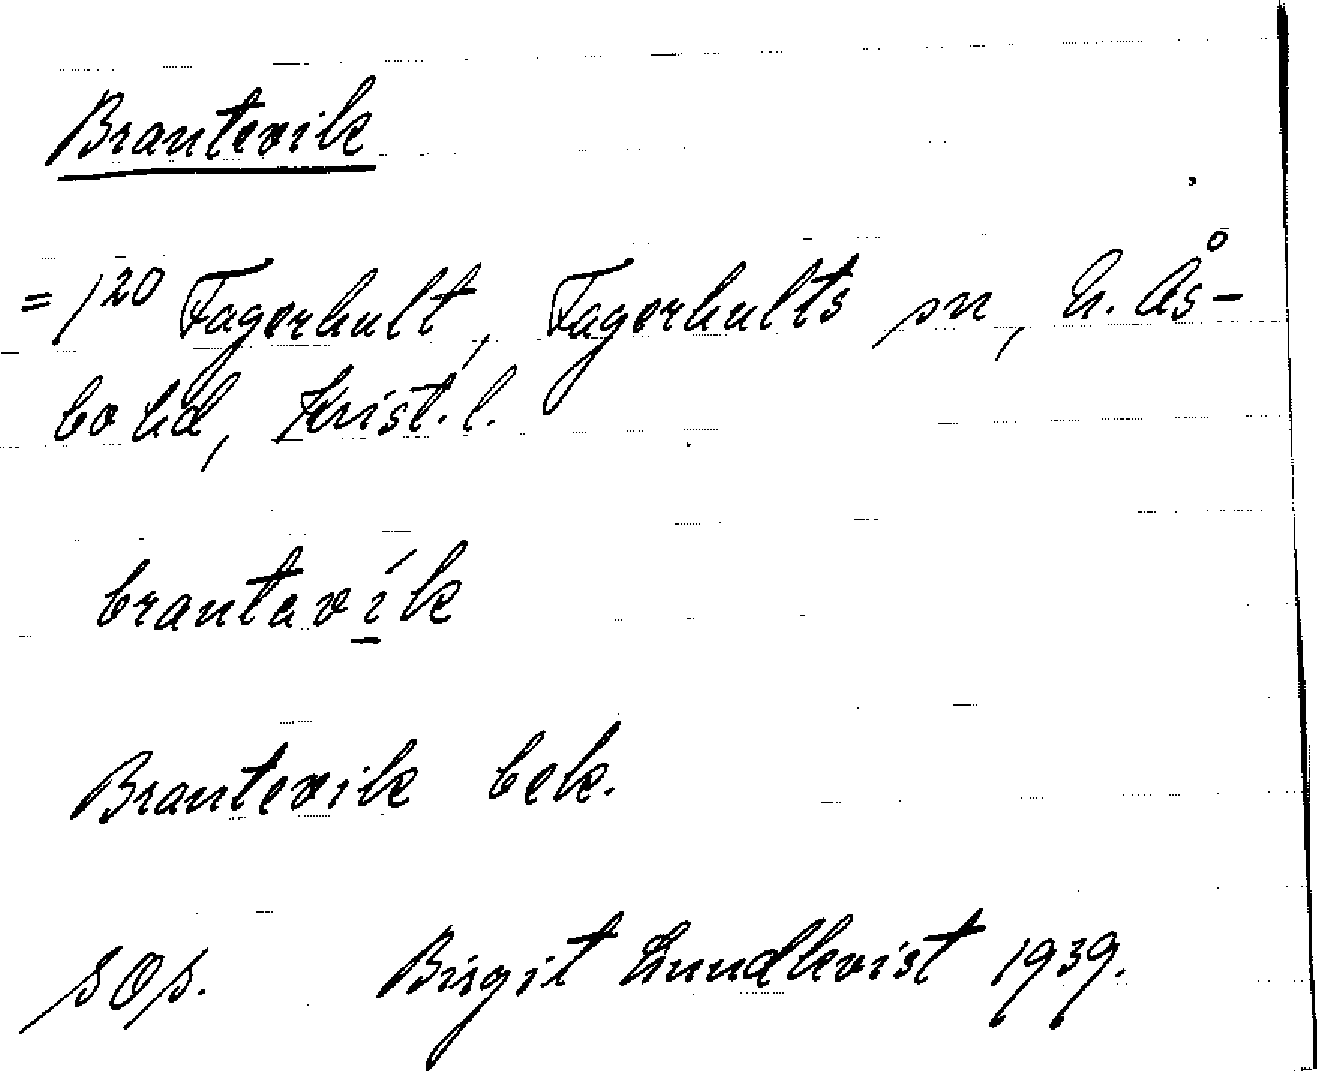 Brantevik
= 1²⁰ Fagerhult, Fagerhults sn, N. Ås-
bo hd, Krist. l.
brantaví̱k
Brantevik bek.
SOS. Birgit Lundkvist 1939.